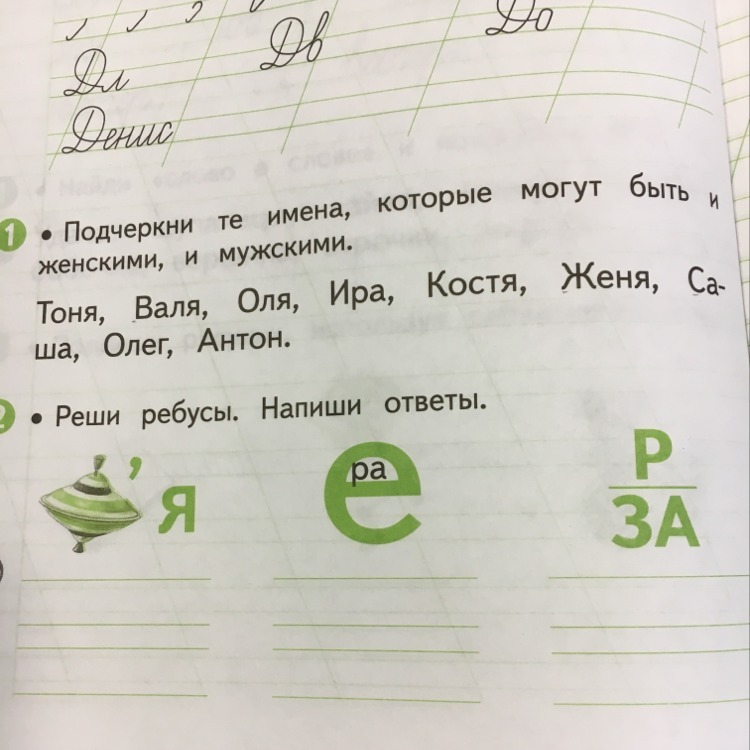 Дл Дв До
Денис
1 • Подчеркни те имена, которые могут быть и
женскими, и мужскими.
Тоня, Валя, Оля, Ира, Костя, Женя, Са-
ша, Олег, Антон.
2 • Реши ребусы. Напиши ответы.
’я
е
ра
Р
ЗА